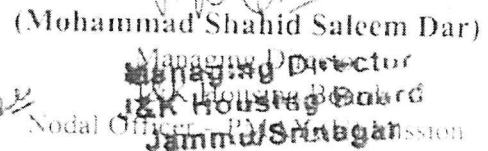 (Mohammad Shahid Saleem Dar)
Managing Director
Managing Director
J&K Housing Board
J&K Housing Board
Nodal Officer
Jammu/Srinagar